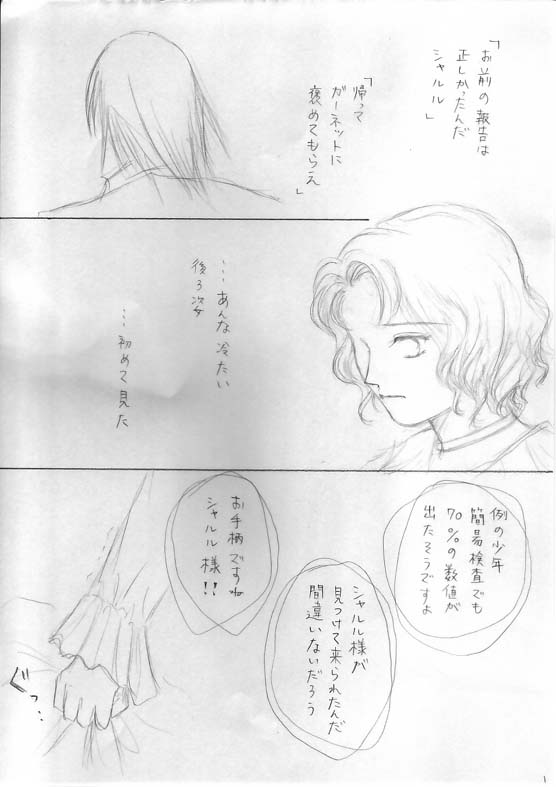 「お前の報告は
正しかったんだ
シャルル」
「帰って
ガーネットに
褒めてもらえ」
…あんな冷たい
後ろ姿
…初めて見た
例の少年
簡易検査でも
70%の数値が
出たそうですよ
シャルル様が
見つけて来られたんだ
間違いないだろう
お手柄ですね
シャルル様!!
ぐっ…
1